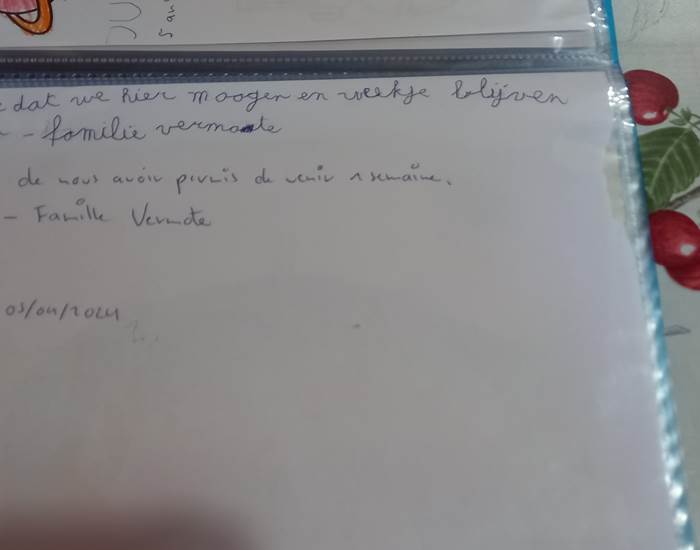 dat we hier moogen en weekje blijven
- familie vermote
de nous avoir permis de venir 1 semaine.
- Famille Vermote
03/04/2024